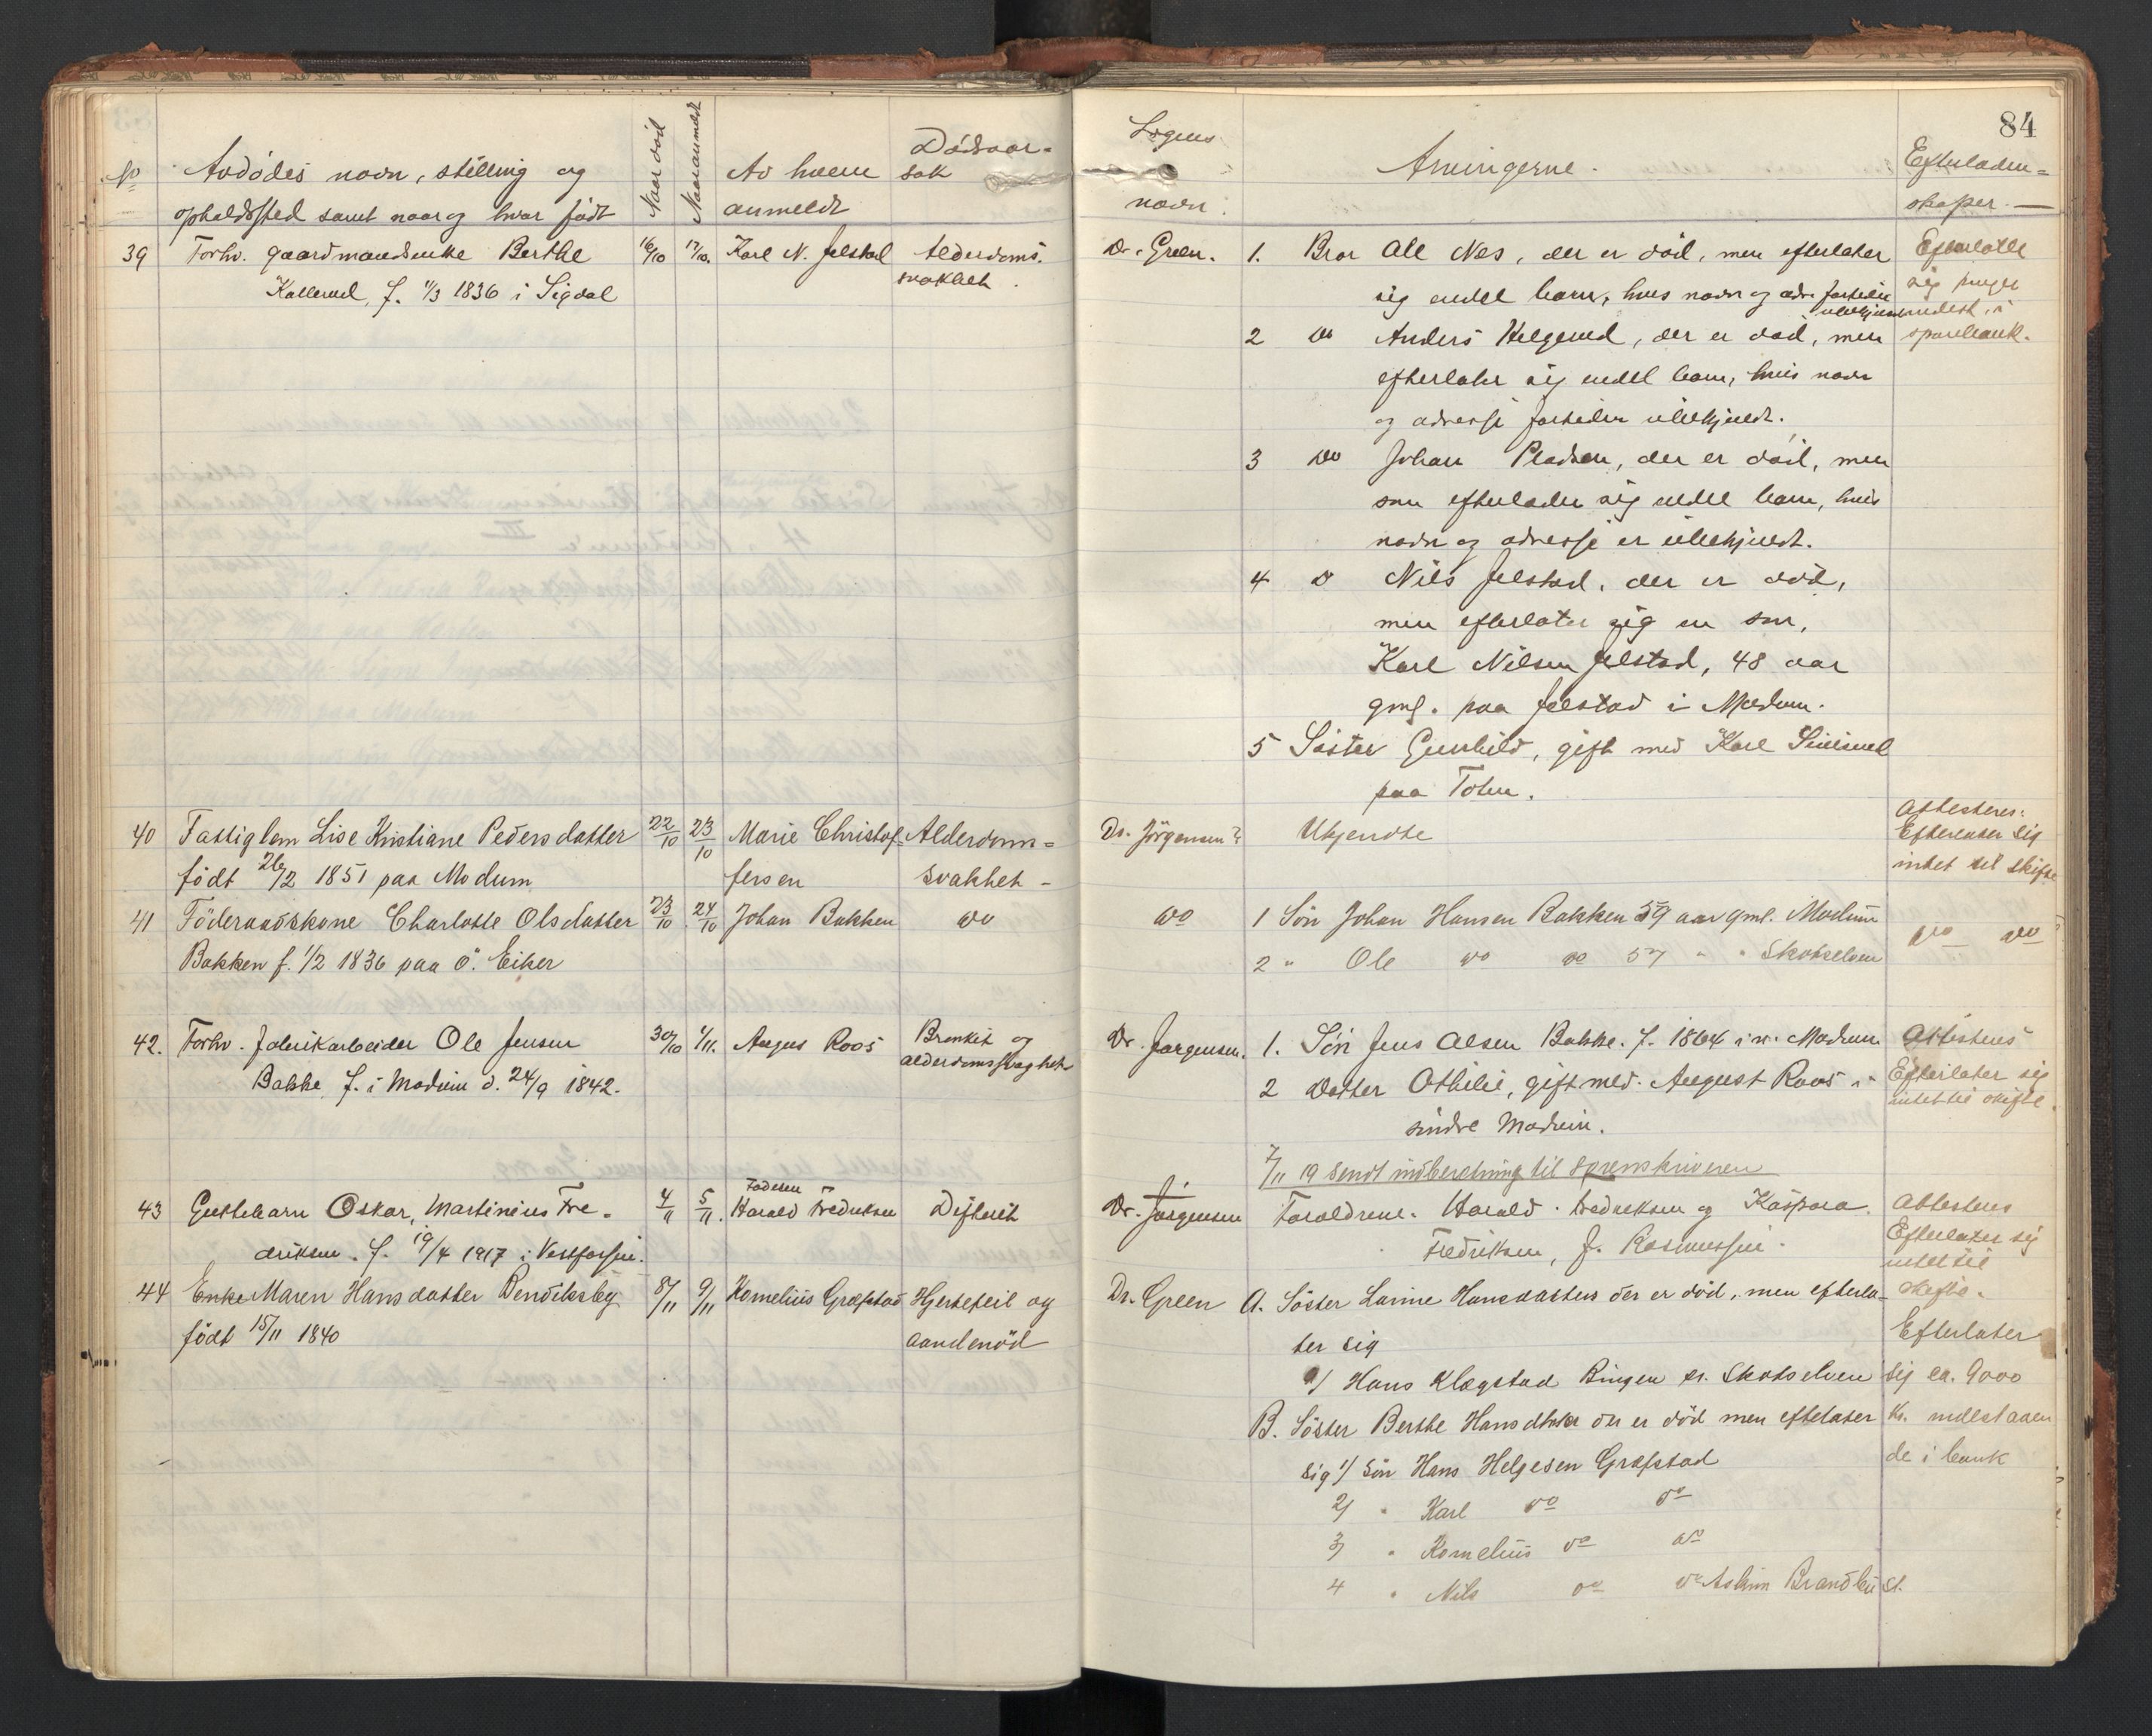 84
No Avdödes navn, stilling og
opholdssted samt naar og hvor født
Naar död
Naar anmeldt
Av hvem
anmeldt
Dødsaar-
sak
Lægens
navn.
Arvingerne.
Efterladen-
skaper.
39 Forhv. gaardmandsenke Berthe
Kollerud, f. 11/3 1836 i Sigdal
16/10 17/10. Karl N. Jelstad
Alderdoms-
svakhet.
Dr. Green.
1. Bror Ole Nes, der er död, men efterlater
sig endel barn, hvis navn og adr. fortiden
ubekjendt
2 do Anders Helgerud, der er död, men
efterlater sig endel barn, hvis navn
og adresse fortiden ubekjendt.
3 do Johan Pladsen, der er död, men
som efterlader sig endel barn, hvis
navn og adresse er ubekjendt.
4 do Nils Jelstad, der er död,
men efterlater sig en søn,
Karl Nilsen Jelstad, 48 aar
gml. paa Jelstad i Modum.
5 Søster Gunhild, gift med Karl
paa Toten.
Efterlatt
sig penger
indest. i
sparebank.
40 Fattiglem Lise Kristiane Pedersdatter
født 26/2 1851 paa Modum
22/10 23/10 Marie Christof-
fersen
Alderdoms-
svakhet
Dr. Jörgensen
Ukjendte
Attesteres:
Efterlater sig
intet til skifte
41 Föderaadskone Charlotte Olsdatter
Bakken f. 1/2 1836 paa Ö. Eiker
23/10 24/10 Johan Bakken do
do
1 Sön Johan Hansen Bakken 59 aar gml. Modum
2 " Ole do do 57 " " Skotselven
do do
42. Forhv. fabrikarbeider Ole Jensen
Bakke f. i Modum d. 24/9 1842.
30/10 1/11. August Roos
Bronkit og
alderdomssvaghet
Dr. Jørgensen.
1. Sön Jens Olsen Bakke. f. 1864 i n. Modum
2 Datter Othilie, gift med August Roos i
søndre Modum.
Attesteres
Efterlater sig
intet til skifte.
7/11 19 sendt indberetning til Sorenskriveren
43 Guttebarn Oskar, Martinius Fre-
driksen. f. 19/4 1917 i Vestfossen.
4/11 5/11. Faderen
Harald Fredriksen
Difterit
Dr. Jørgensen
Foreldrene: Harald Fredriksen og Kaspara
Fredriksen, f. Rasmussen.
Attesteres
Efterlater sig
intet til
skifte.
44 Enke Maren Hansdatter Bendiksby
født 15/11 1840
8/11 9/11 Kornelius Græfstad
Hjertefeil og
aandenöd
Dr. Green
A. Søster Larine Hansdatter der er död, men efterla-
ter sig
1/ Hans Klægstad Ringen pr. Skotselven
B. Søster Berthe Hansdtter der er död men efterlater
sig 1/ sön Hans Helgesen Græfstad
2/ " Karl do do
3/ " Kornelius do do
4 " Nils do do Brandbu st.
Efterlater
sig ca. 9000
kr. indestaaen
de i bank